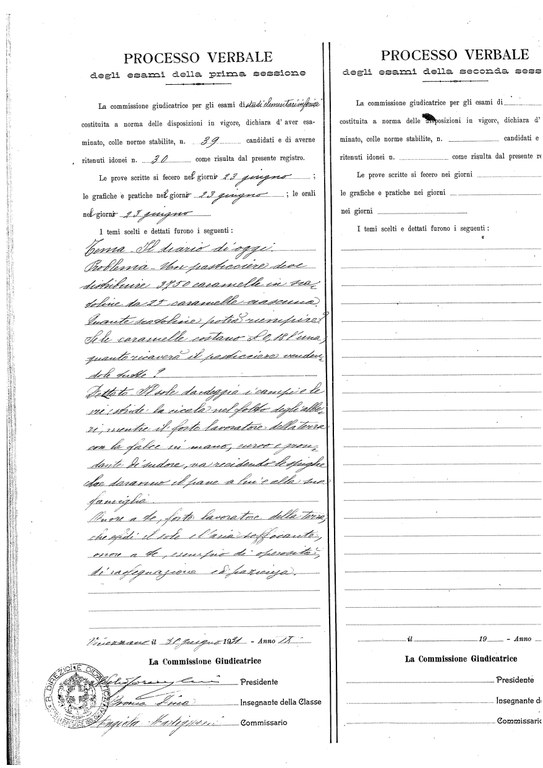 PROCESSO VERBALE
degli esami della prima sessione
La commissione giudicatrice per gli esami di studi elementari inferiori
costituita a norma delle disposizioni in vigore, dichiara d'aver esa-
minato, colle norme stabilite, n. 39 candidati e di averne
ritenuti idonei n. 30 come risulta dal presente registro.
Le prove scritte si fecero nel giorno 23 giugno ;
le grafiche e pratiche nel giorno 23 giugno ; le orali
nel giorno 23 giugno
I temi scelti e dettati furono i seguenti:
Tema - Il diario di oggi.
Problema - Un pasticciere deve
distribuire 3750 caramelle in sca-
toline da 25 caramelle ciascuna
Quante scatoline potrà riempire?
Se le caramelle costano £ 0,18 l'una,
quanto ricaverà il pasticciere venden-
dole tutte?
Dettato Il sole dardeggia i campi e le
vie stride la cicala nel folto degli albe-
ri, mentre il forte lavoratore della terra
con la falce in mano, curvo e gron-
dante di sudore, va recidendo le spighe
che daranno il pane a lui e alla sua
famiglia.
Onore a te, forte lavoratore della terra,
che sfidi il sole e l'aria soffocante,
onore a te, esempio di operosità,
di rassegnazione e di pazienza.
giugno 1931 - Anno IX
La Commissione Giudicatrice
Presidente
Insegnante della Classe
Commissario
PROCESSO VERBALE
degli esami della seconda sess
La commissione giudicatrice per gli esami di
costituita a norma delle disposizioni in vigore, dichiara d'
minato, colle norme stabilite, n. candidati e
ritenuti idonei n. come risulta dal presente re
Le prove scritte si fecero nei giorni
le grafiche e pratiche nei giorni
nei giorni
I temi scelti e dettati furono i seguenti:
il 19 - Anno
La Commissione Giudicatrice
Presidente
Insegnante d
Commissario